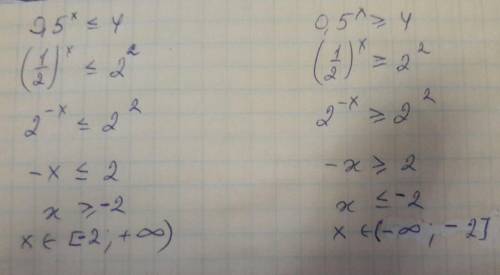 0,5^x ≤ 4
(1/2)^x ≤ 2^2
2^-x ≤ 2^2
-x ≤ 2
x ≥ -2
x ∈ [-2; +∞)
0,5^x ≥ 4
(1/2)^x ≥ 2^2
2^-x ≥ 2^2
-x ≥ 2
x ≤ -2
x ∈ (-∞; -2]